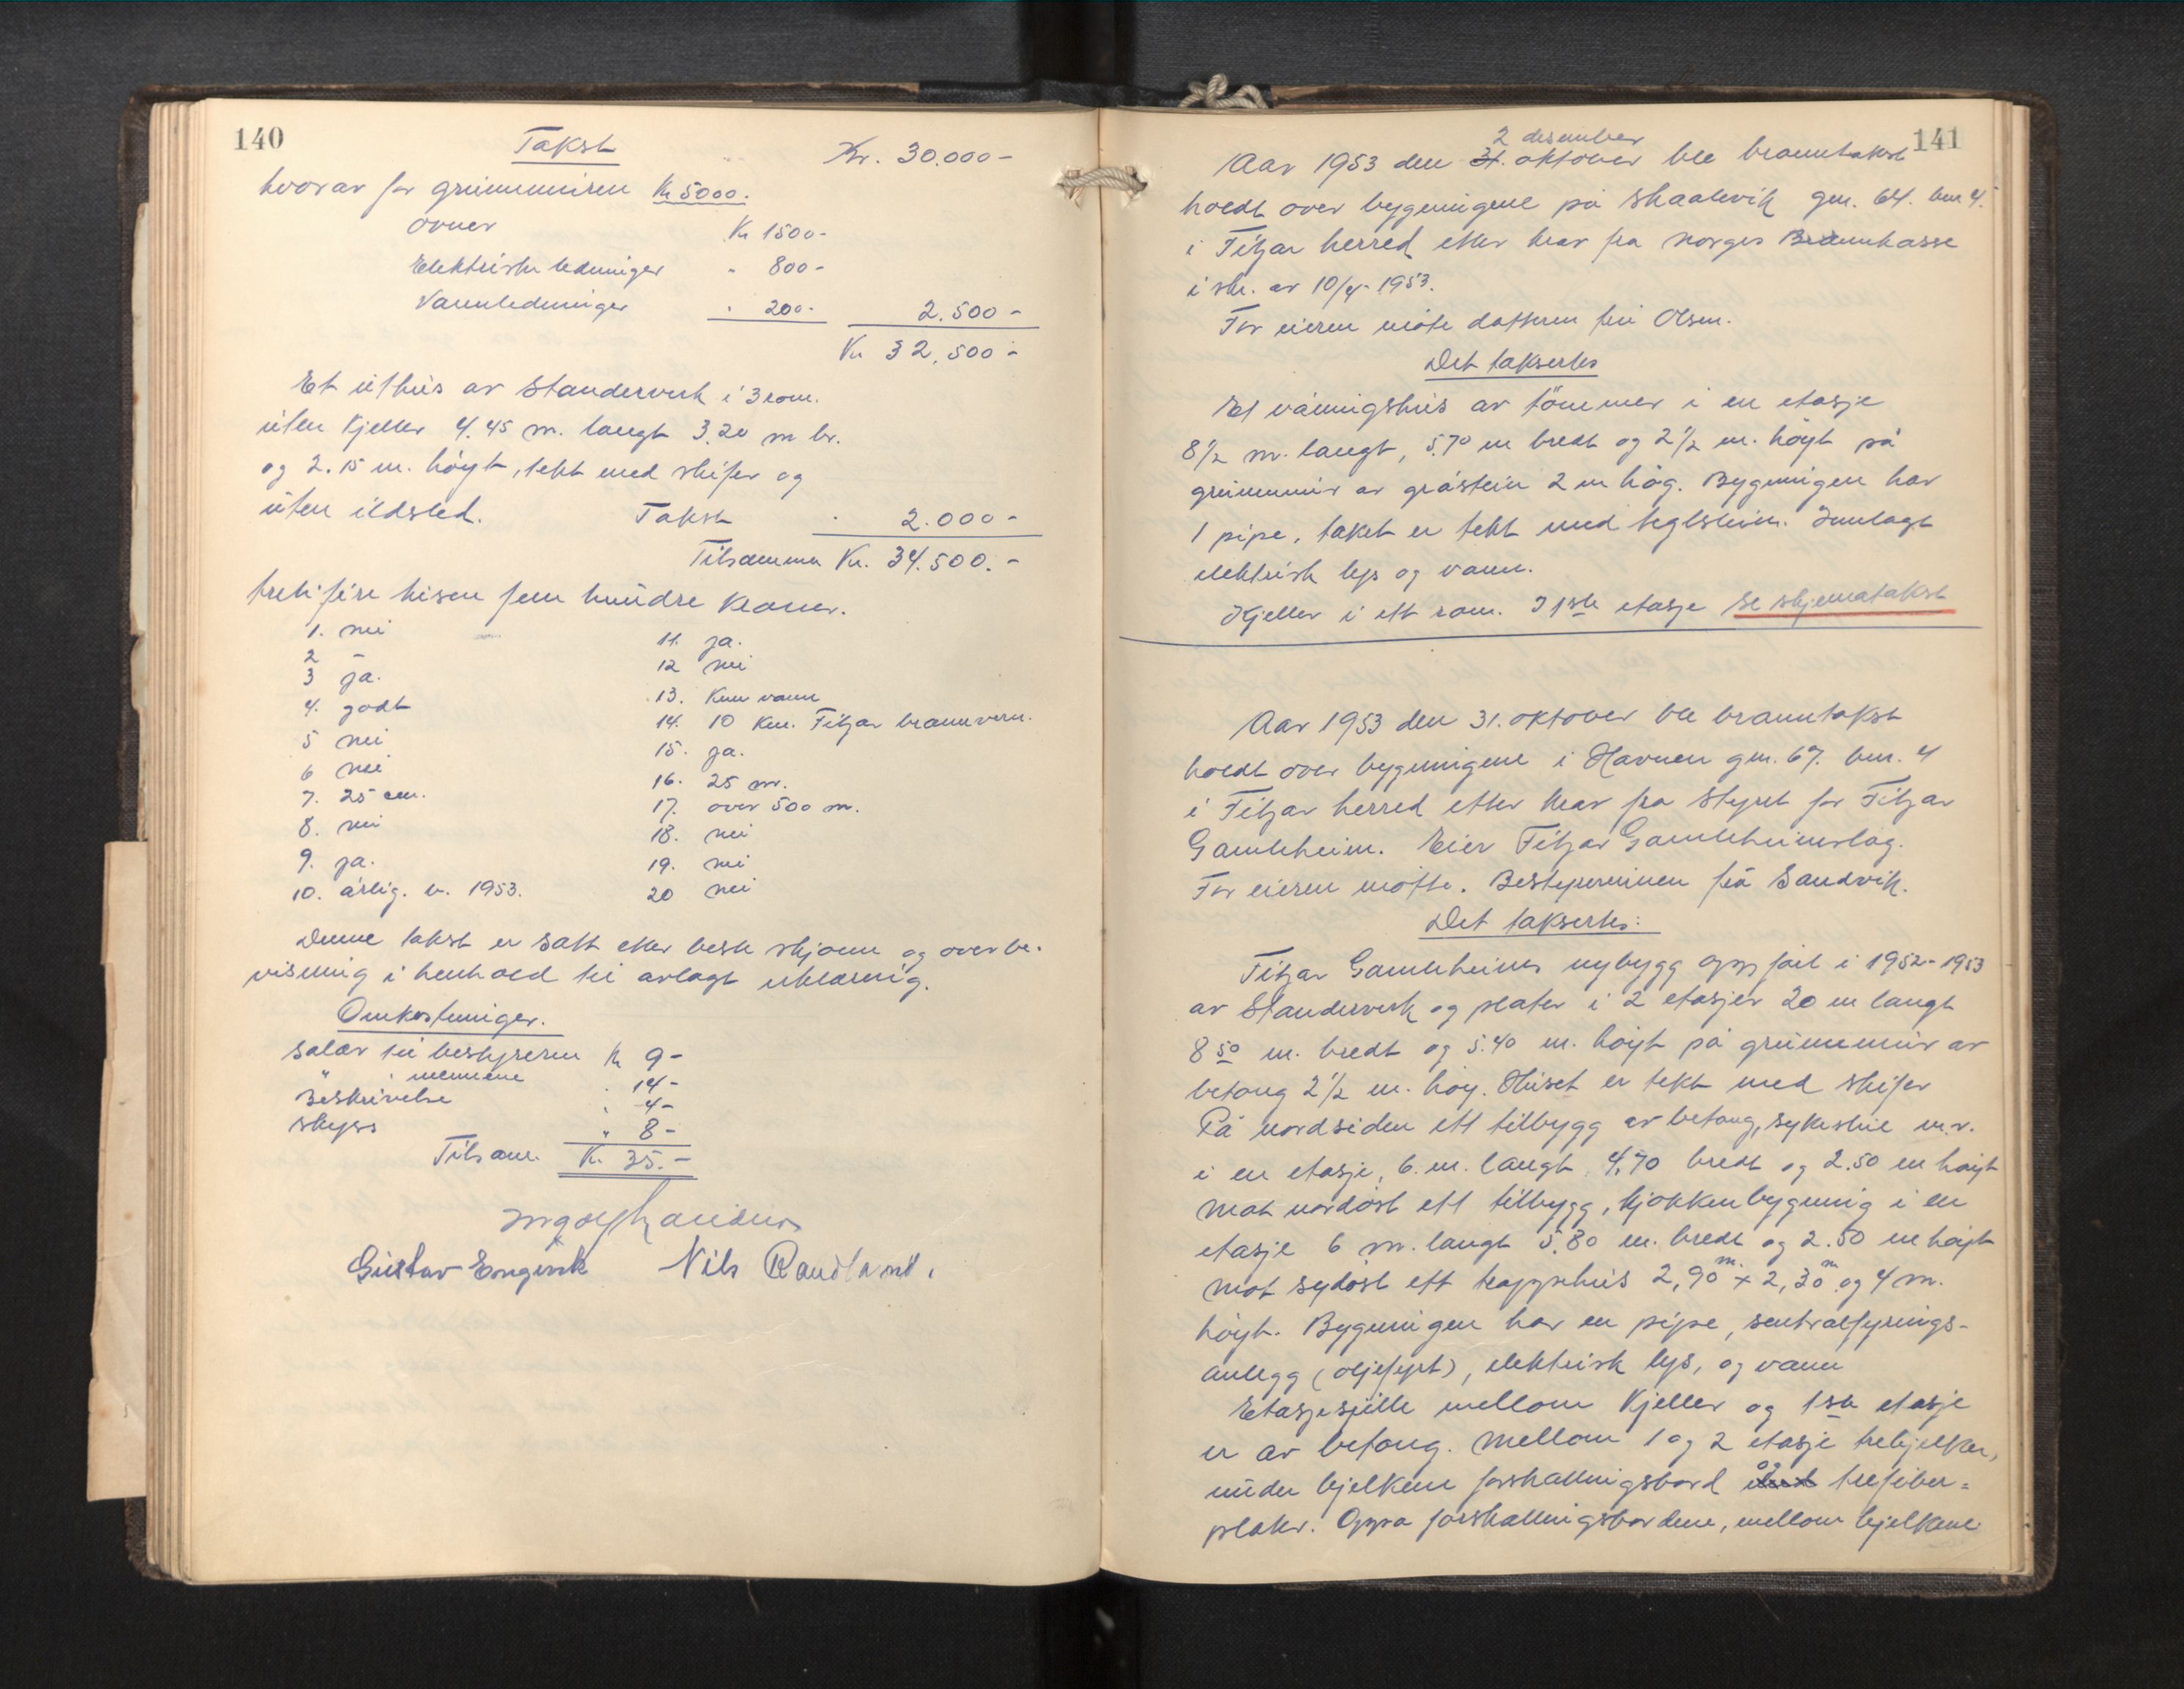 140
Takst Kr. 30.000-
hvorav for grunnmuren Kr 5000.
Ovner Kr 1500-
Elektriske ledninger " 800-
Vannledninger " 200- 2.500-
Kr 32.500-
Et uthus av Standerverk i 3 rom.
uten Kjeller 4.45 m. langt 3.20 m br.
og 2.15 m. høyt, tekt med skifer og
uten ildsted. Takst " 2.000-
Tilsammen Kr. 34.500.-
tretifire tusen fem hundre kroner.
1. nei
2 -
3 ja.
4. godt
5 nei
6 nei
7. 25 cm.
8. nei
9. ja.
10. årlig. v. 1953.
11. ja.
12 nei
13. Kun vann
14. 10 Km. Fitjar brannvern.
15. ja.
16. 25 m.
17. over 500 m.
18. nei
19. nei
20 nei
Denne takst er satt etter beste skjønn og overbe-
visning i henhold til avlagt erklæring.
Omkostninger.
Salær til bestyreren Kr 9-
" " mennene " 14-
Beskrivelse " 4-
Skyss " 8-
Tilsam. Kr. 35.-
Gustav Engevik Nils Randland.
141
2 desember
Aar 1953 den 31. oktober ble branntakst
holdt over bygningene på Skaalevik gnr. 64. bnr 4.
i Fitjar herred etter krav fra Norges Brannkasse
i skr. av 10/4-1953.
For eieren møte datteren fru Olsen.
Det taksertes
Et våningshus av tömmer i en etasje
8 1/2 m. langt, 5.70 m bredt og 2 1/2 m. höyt på
grunnmur av gråstein 2 m hög. Bygningen har
1 pipe, taket er tekt med teglstein. Innlagt
elektrisk lys og vann.
Kjeller i ett rom. I 1ste etasje se skjematakst
Aar 1953 den 31. oktober ble branntakst
holdt over bygningene i Havnen gnr. 67. bnr. 4
i Fitjar herred etter krav fra Styret for Fitjar
Gamleheim. Eier Fitjar Gamleheimslag.
For eieren møtte. Bestyrerinnen frå Sandvik.
Det taksertes:
Fitjar Gamleheims nybygg oppfört i 1952-1953
av Standerverk og plater i 2 etasjer 20 m langt
8 50 m. bredt og 5.40 m. höyt på grunnmur av
betong 2 1/2 m. höy. Huset er tekt med skifer
På nordsiden ett tilbygg av betong, sykestue m.v.
i en etasje, 6. m. langt 4,70 bredt og 2.50 m höyt
mot nordöst ett tilbygg, kjøkkenbygning i en
etasje 6 m. langt 5.80 m. bredt og 2.50 m höyt
mot sydöst ett trappehus 2,90 m. x 2,30 m og 4 m.
höyt. Bygningen har en pipe, sentralfyrings-
anlegg (oljefyrt), elektrisk lys, og vann
Etasjeskille mellom Kjeller og 1ste etasje
er av betong. Mellom 1 og 2 etasje trebjelker,
under bjelkene forskallingsbord og trefiber=
plater. Oppå forskallingsbordene, mellom bjelkene